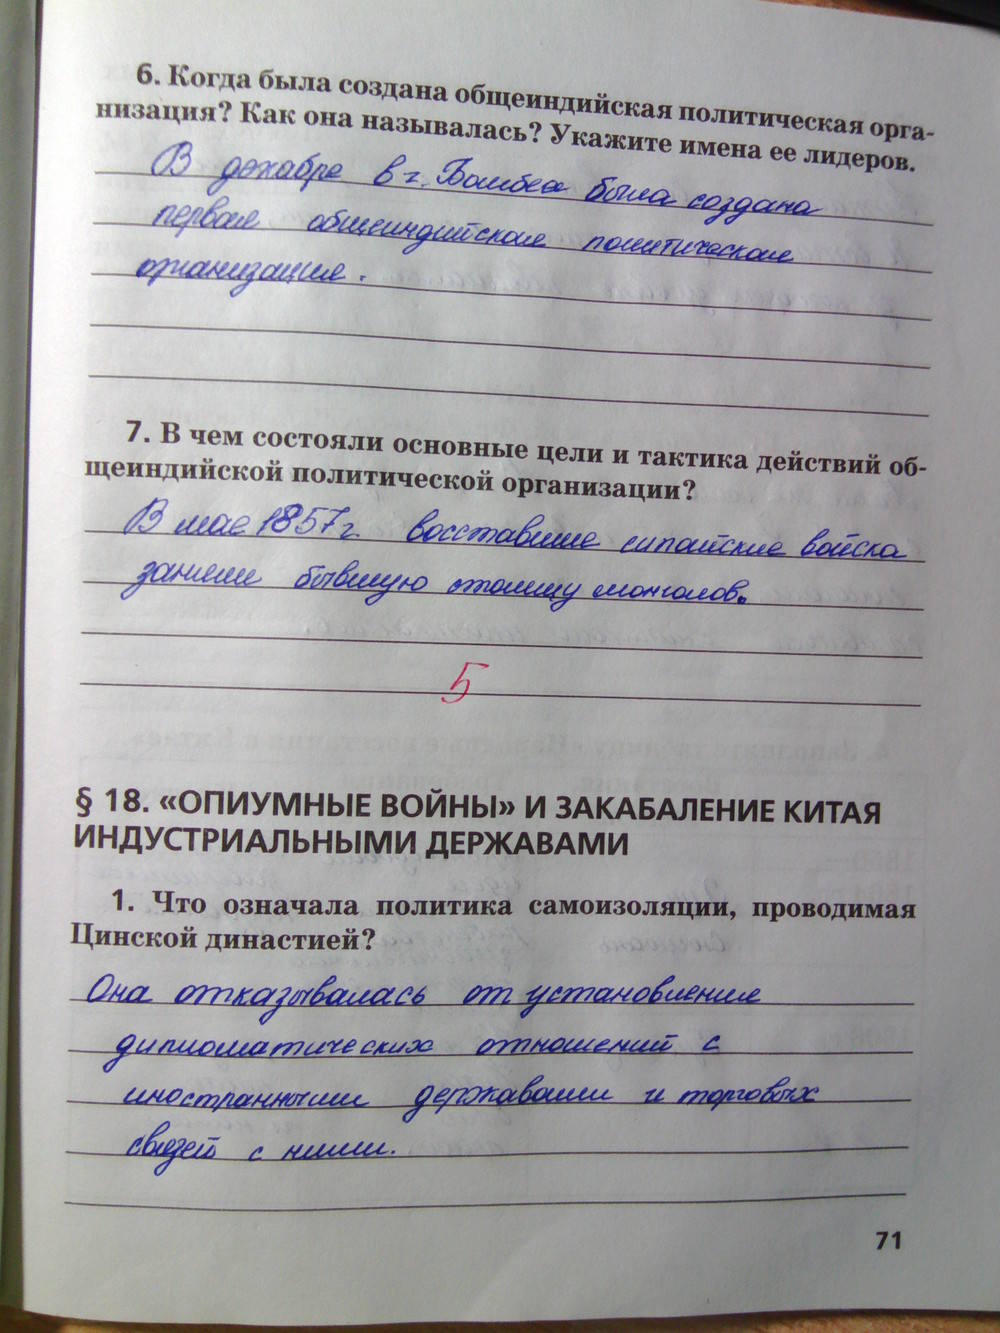 6. Когда была создана общеиндийская политическая орга-
низация? Как она называлась? Укажите имена ее лидеров.
В декабре в г. Бомбее была создана
первая общеиндийская политическая
организация.
7. В чем состояли основные цели и тактика действий об-
щеиндийской политической организации?
В мае 1857 г. восставшие сипайские войска
заняли бывшую столицу монголов.
5
§ 18. «ОПИУМНЫЕ ВОЙНЫ» И ЗАКАБАЛЕНИЕ КИТАЯ
ИНДУСТРИАЛЬНЫМИ ДЕРЖАВАМИ
1. Что означала политика самоизоляции, проводимая
Цинской династией?
Она отказывалась от установление
дипломатических отношений с
иностранными державами и торговых
связей с ними.
71